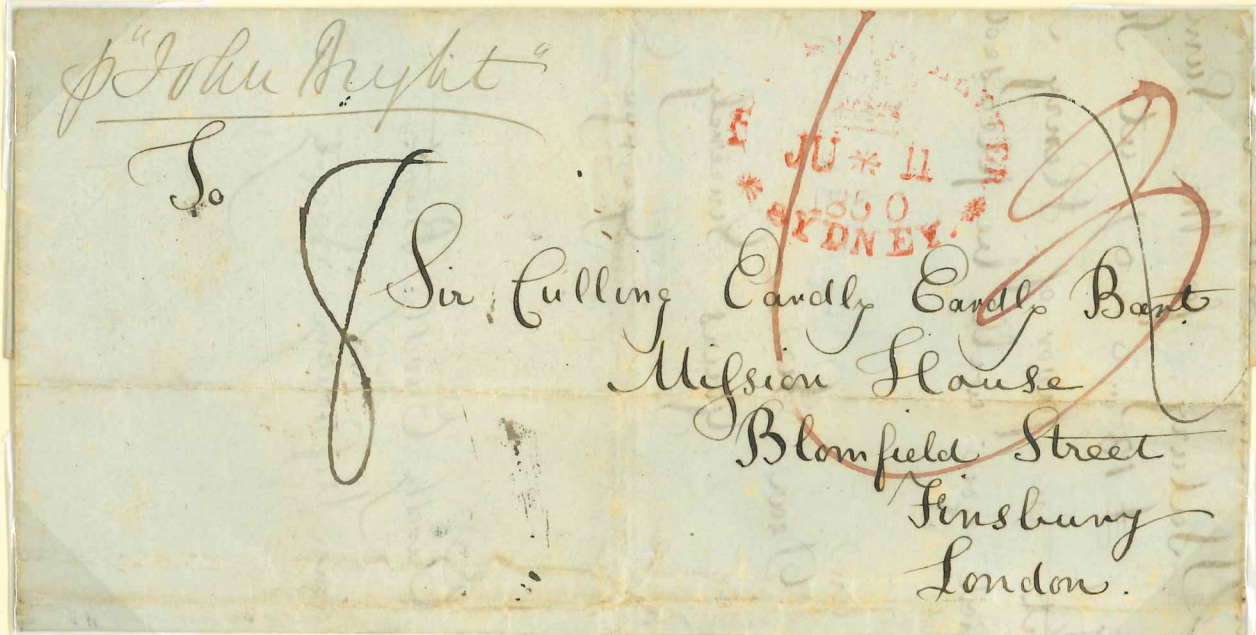 p "John Bright"
To
8
JU * 11
1850
* SYDNEY. *
Sir Culling Eardly Eardly Bart.
Mission House
Blomfield Street
Finsbury
London.